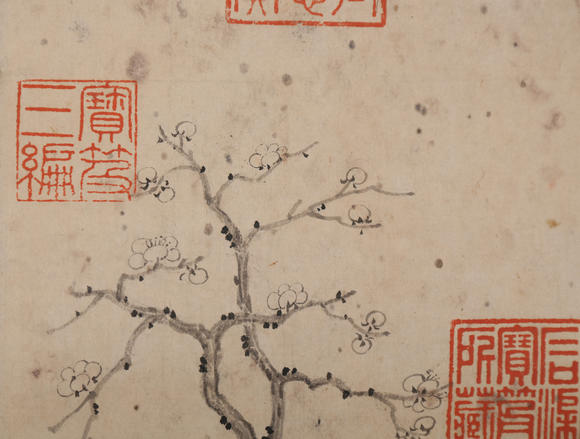 寶笈
三編
石渠
寶笈
所藏